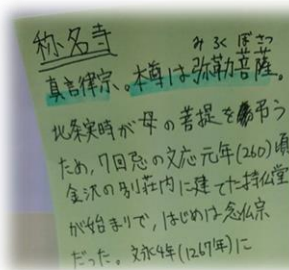 称名寺
みろくぼさつ
真言律宗、。本尊は弥勒菩薩。
北条実時が母の菩提を弔う
ため,7回忌の文応元年(260)頃
金沢の別荘内に建てた持仏堂
が始まりで,はじめは念仏宗
だった。文永4年(1267年)に